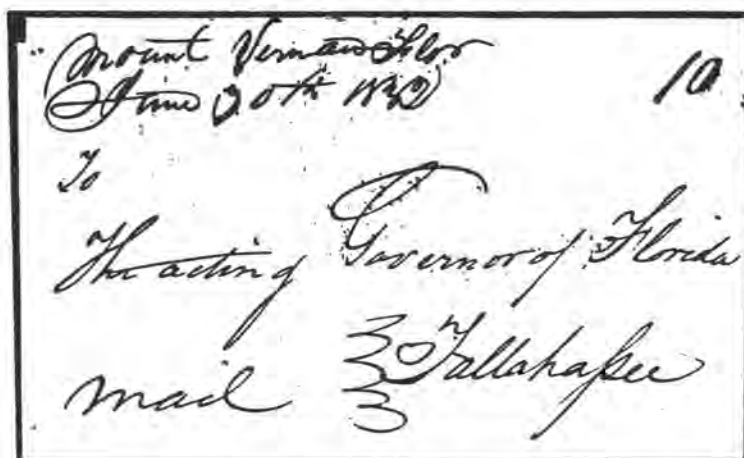 Mount Vernon Flor
June 20th 1832
10
To
The acting Governor of Florida
mail Tallahassee